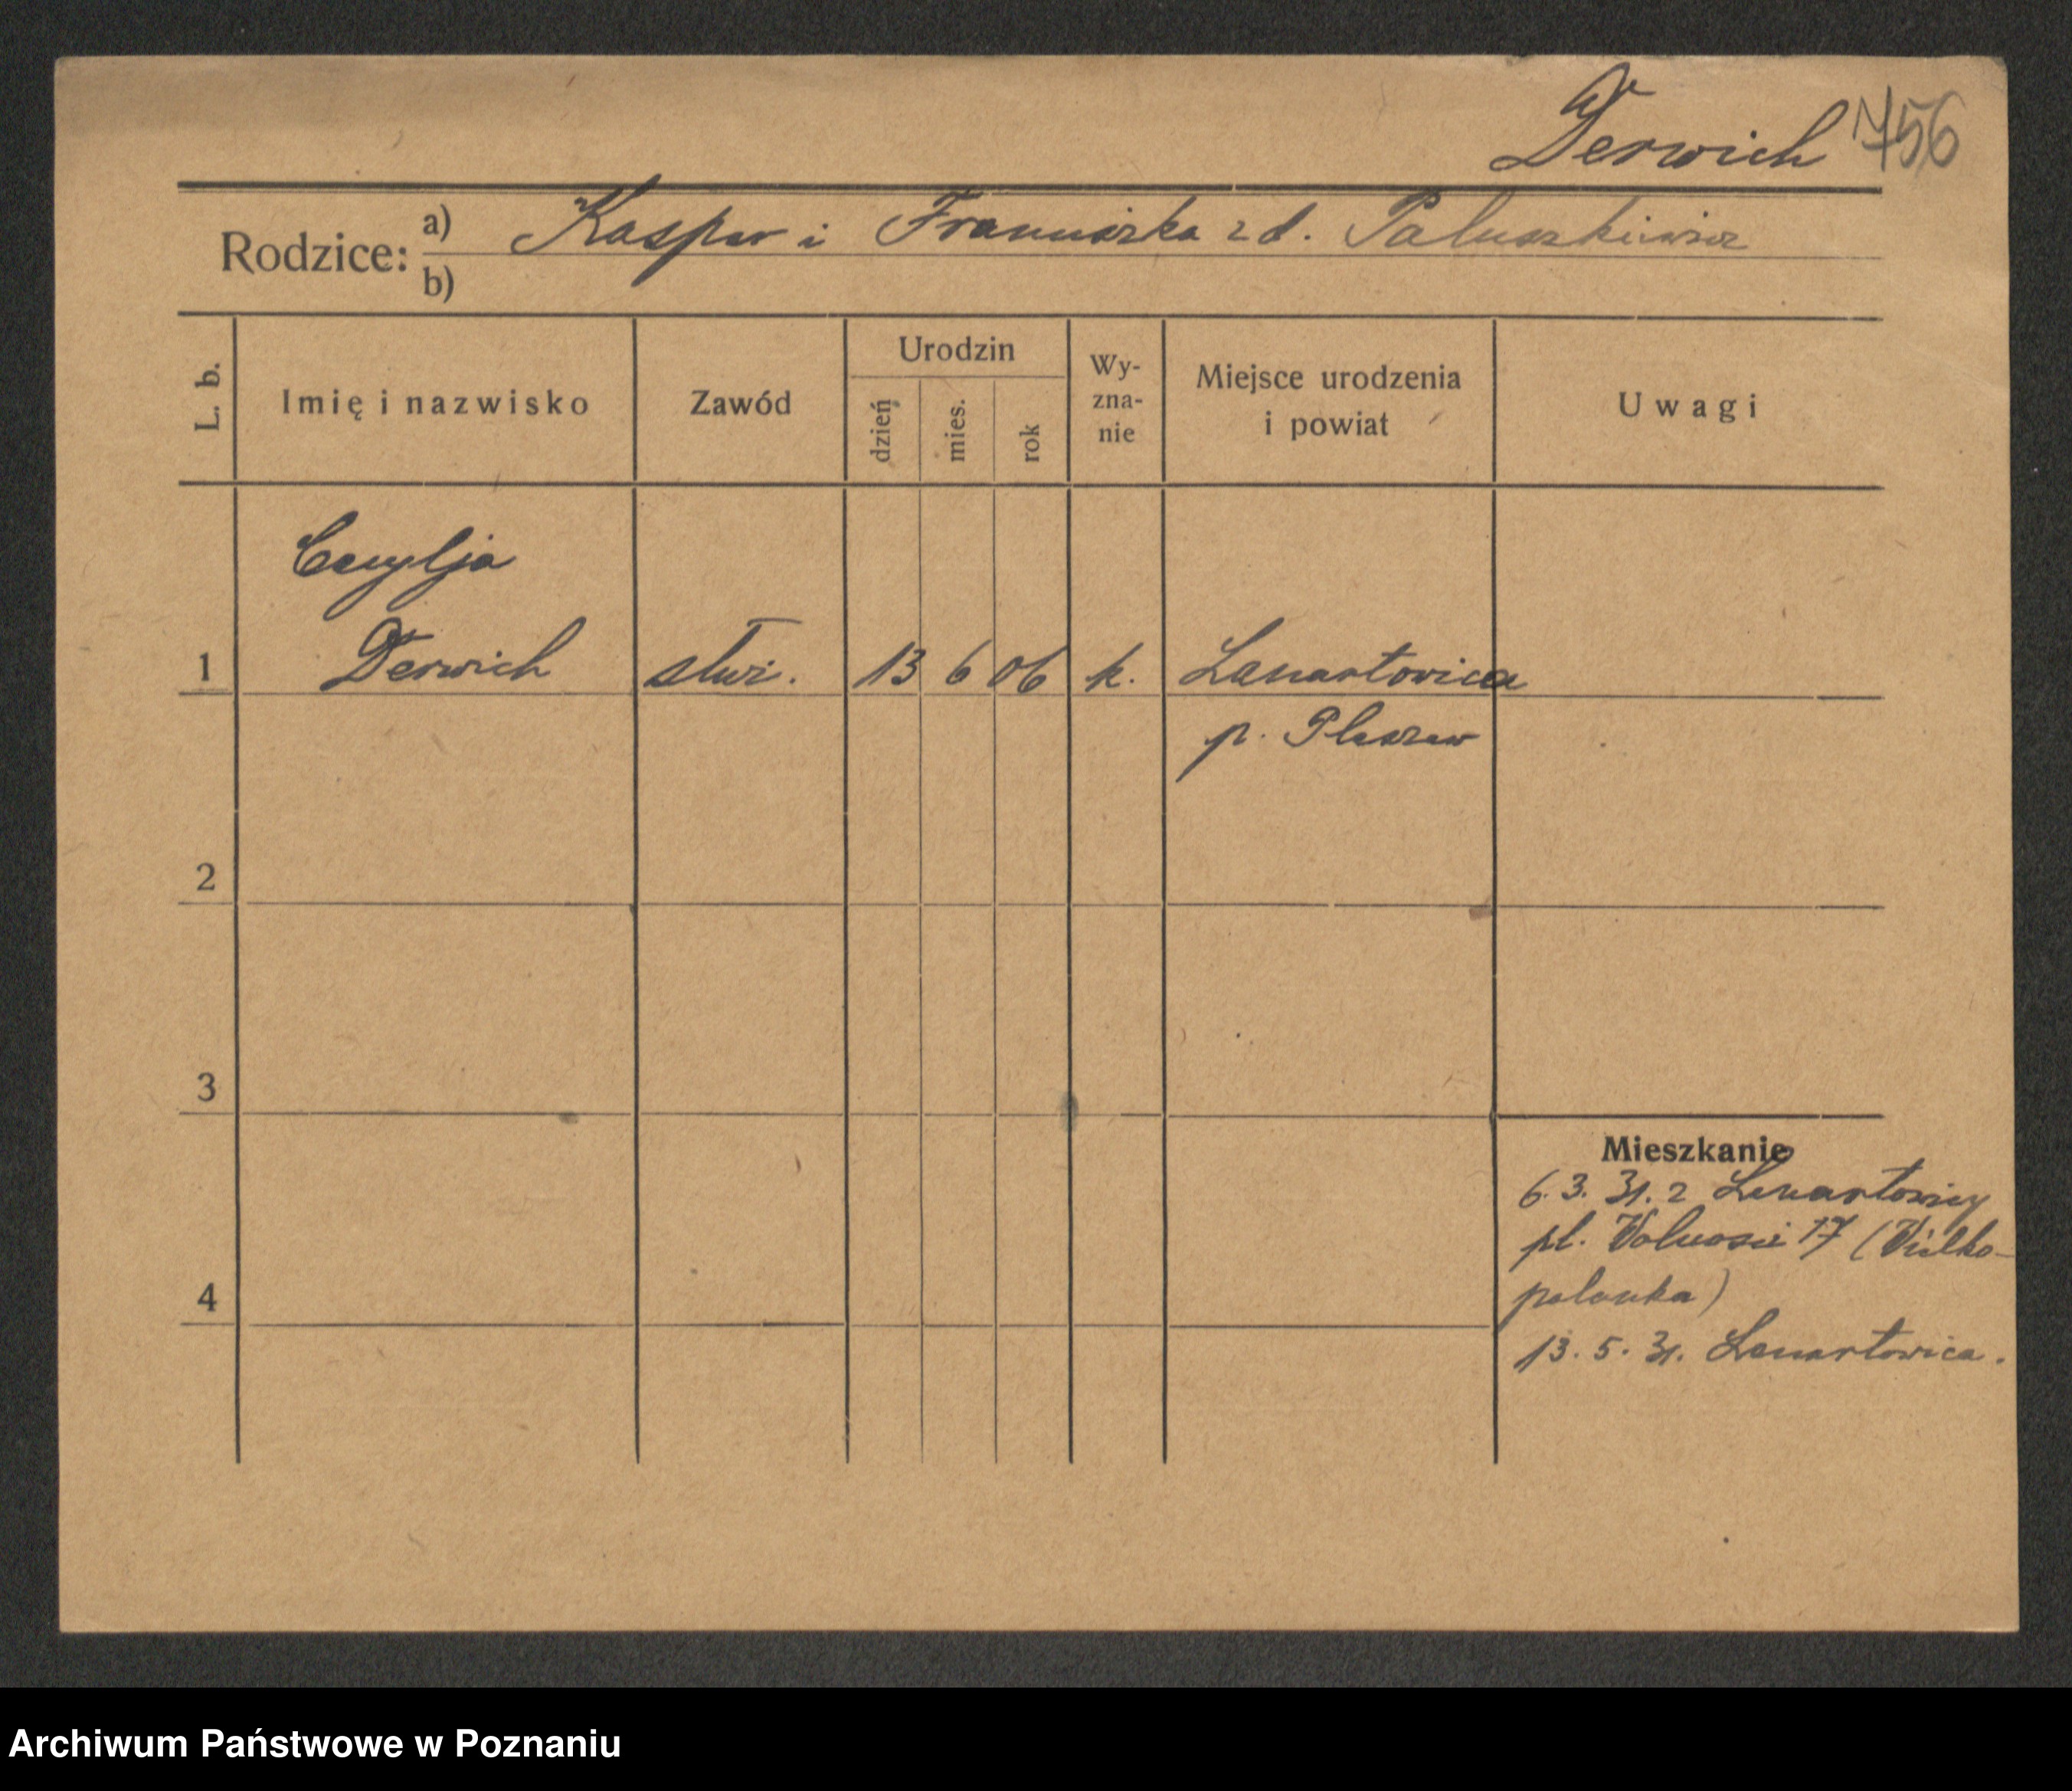 Derwich 756
Rodzice: a) Kasper i Franciszka z d. Paluszkiewicz
b)
L. b.
Imię i nazwisko
Zawód
Urodzin
dzień
mies.
rok
Wy-
zna-
nie
Miejsce urodzenia
i powiat
Uwagi
Cecylja
1 Derwich służ. 13 6 06 k. Lenartowice
p. Pleszew
2
3
4
Mieszkanie
6. 3. 31. z Lenartowicy
pl. Wolności 17 (Wielko-
polanka)
13. 5. 31. Lenartowice.
Archiwum Państwowe w Poznaniu